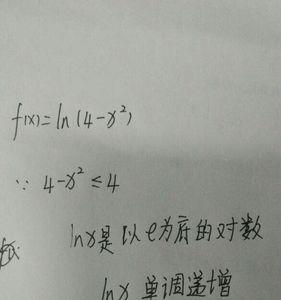 f(x)=ln(4-x²)
∵ 4-x²≤4
lnx是以e为底的对数
lnx 单调递增